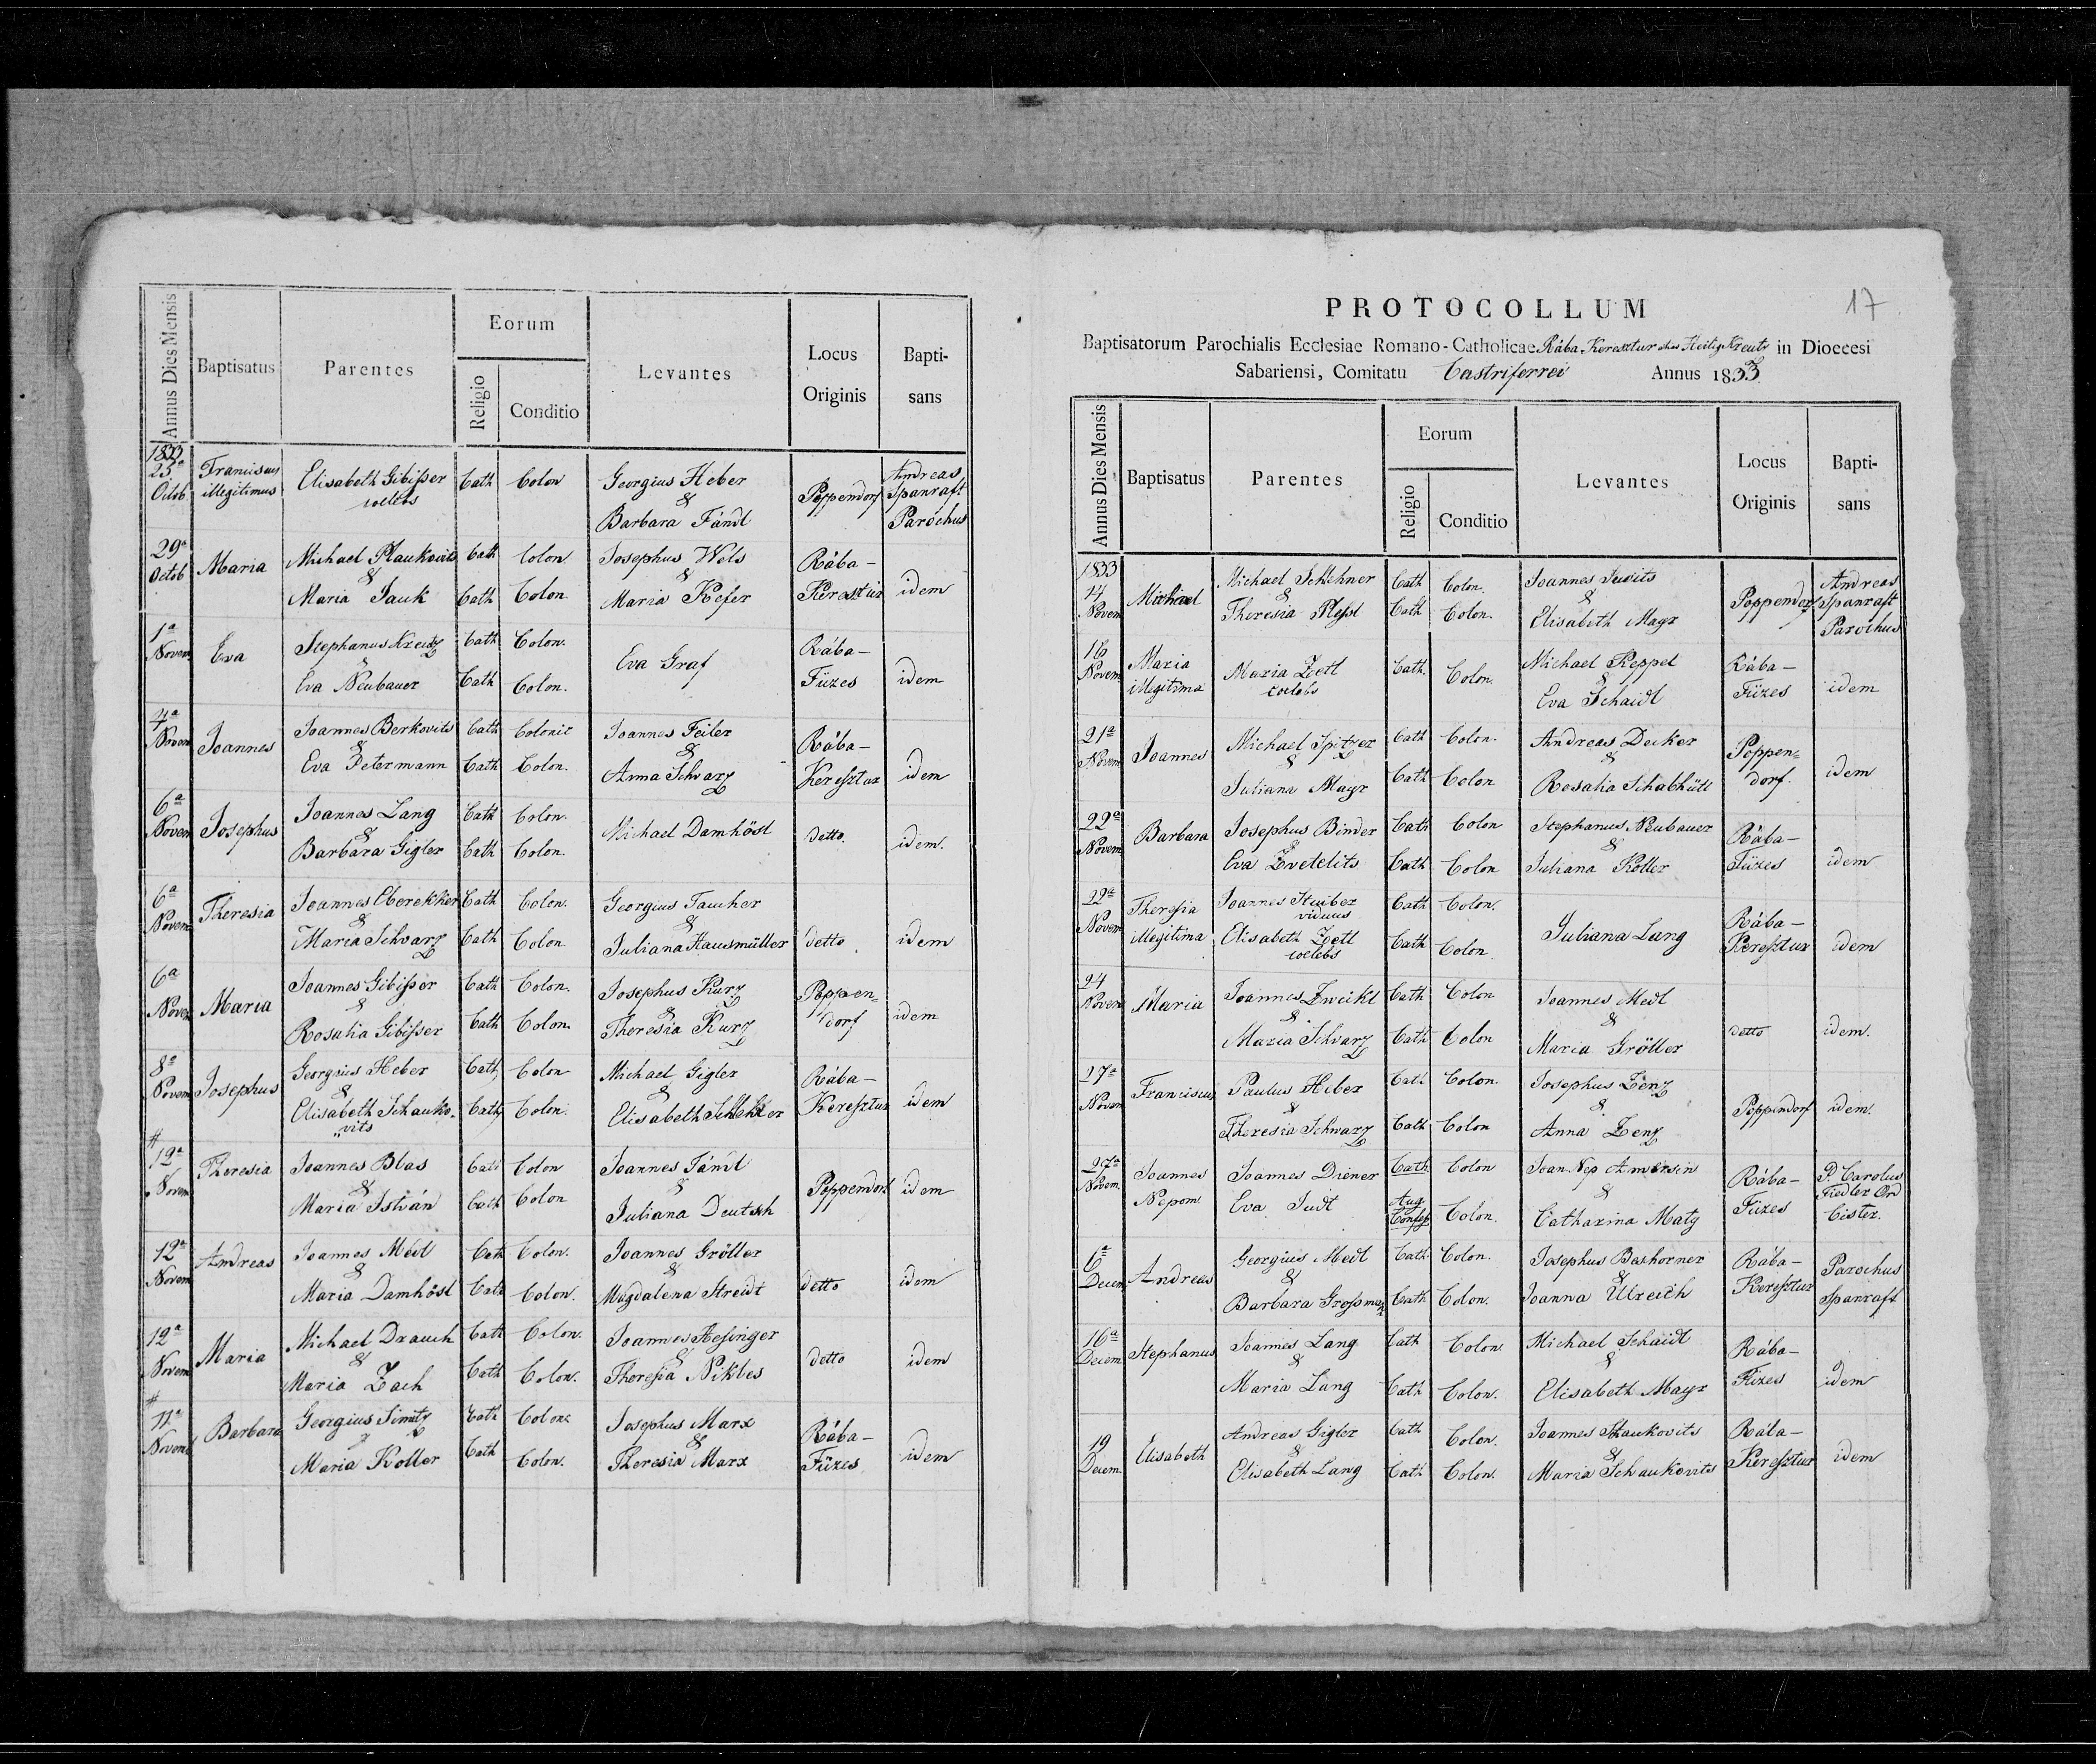 Annus Dies Mensis
Baptisatus
Parentes
Eorum
Religio
Conditio
Levantes
Locus Originis
Bapti-sans
1833
25a Octob Franciscus illegitimus Elisabeth Gibisser coelebs Cath Colon Georgius Heber & Barbara Fándl Poppendorf Andreas Spanraft Parochus
29a Octob Maria Michael Plaukovits & Maria Jauk Cath Cath Colon Colon Josephus Wels & Maria Kefer Rába- Kerestur idem
1a Novem Eva Stephanus Kreutz & Eva Neubauer Cath Cath Colon. Colon. Eva Graf Rába- Füzes idem
4a Novem Joannes Joannes Berkovits & Eva Petermann Cath Cath Colonic Colon. Joannes Feiler & Anna Schvarz Rába- Keresztur idem
6a Novem Josephus Joannes Lang & Barbara Gigler Cath Cath Colon. Colon. Michael Damhöst detto. idem.
6a Novem Theresia Joannes Oberekker & Maria Schvarz Cath Cath Colon. Colon Georgius Taucher & Juliana Hausmüller detto. idem
6a Novem Maria Joannes Gibisser & Rosalia Gibisser Cath Cath Colon. Colon. Josephus Kurz & Theresia Kurz Poppen= dorf idem
8a Novem Josephus Georgius Heber & Elisabeth Schauko- "vits Cath Cath Colon Colon. Michael Gigler & Elisabeth Rába- Keresztur idem
# 12a Novem Theresia Joannes Blas & Maria István Cath Cath Colon Colon Joannes Fándl & Juliana Deutsch Poppendorf idem
12a Novem Andreas Joannes Médl & Maria Damhöst Cath Cath Colon. Colon. Joannes Gröller & Magdalena Streidt detto idem
12a Novem Maria Michael Drauch & Maria Zach Cath Cath Colon. Colon. Joannes Hesinger & Theresia Nikles detto idem
# 11a Novem Barbara Georgius Simitz & Maria Koller Cath Cath Colon. Colon. Josephus Marx & Theresia Marx Rába- Füzes idem
17
PROTOCOLLUM
Baptisatorum Parochialis Ecclesiae Romano-Catholicae Rába Keresztur alias Heilig Kreutz in Dioecesi
Sabariensi, Comitatu Castriferrei Annus 1833.
Annus Dies Mensis
Baptisatus
Parentes
Eorum
Religio
Conditio
Levantes
Locus Originis
Bapti-sans
1833
14 Novem Michael Michael Schlehner & Theresia Plessl Cath Cath Colon. Colon. Joannes & Elisabeth Mayr Poppendorf Andreas Spanraft Parochus
16 Novem Maria illegitima Maria Zetl coelebs Cath. Colon. Michael Keppel & Eva Schaidl Rába- Füzes idem
21a Novem Joannes Michael Spitzer & Juliana Mayr Cath Cath Colon. Colon Andreas Decker & Rosalia Schabhütl Poppen= dorf. idem
22a Novem Barbara Josephus Binder & Eva Zvetelits Cath Cath Colon Colon Stephanus Neubauer & Juliana Koller Rába- Füzes idem
22a Novem Theresia illegitima Joannes Stuiber viduus Elisabeth Zetl coelebs Cath Cath Colon. Colon. Juliana Lang Rába- Keresztur idem
24 Novem Maria Joannes Zweikl & Maria Schvarz Cath Cath Colon Colon Joannes Medl & Maria Gröller detto idem.
27a Novem Franciscus Paulus Heber & Theresia Schwarz Cath Cath Colon. Colon Josephus Zenz & Anna Zenz Poppendorf idem.
27a Novem. Joannes Nepom. Joannes Diener Eva Judt Cath Aug. Confess. Colon Colon. Joan. Nep & Catharina Rába- Füzes P. Carolus Fiedler Ord Cister.
6a Decem Andreas Georgius Medl & Barbara Grosman Cath Cath Colon. Colon. Josephus Bashorner & Joanna Ulreich Rába- Keresztur Parochus Spanraft
16a Decem. Stephanus Joannes Lang & Maria Lang Cath Cath Colon. Colon. Michael Schaidl & Elisabeth Mayr Rába- Füzes idem
19 Decem. Elisabeth Andreas Gigler & Elisabeth Lang Cath Cath Colon. Colon. Joannes Schaukovits & Maria Schaukovits Rába- Keresztur idem